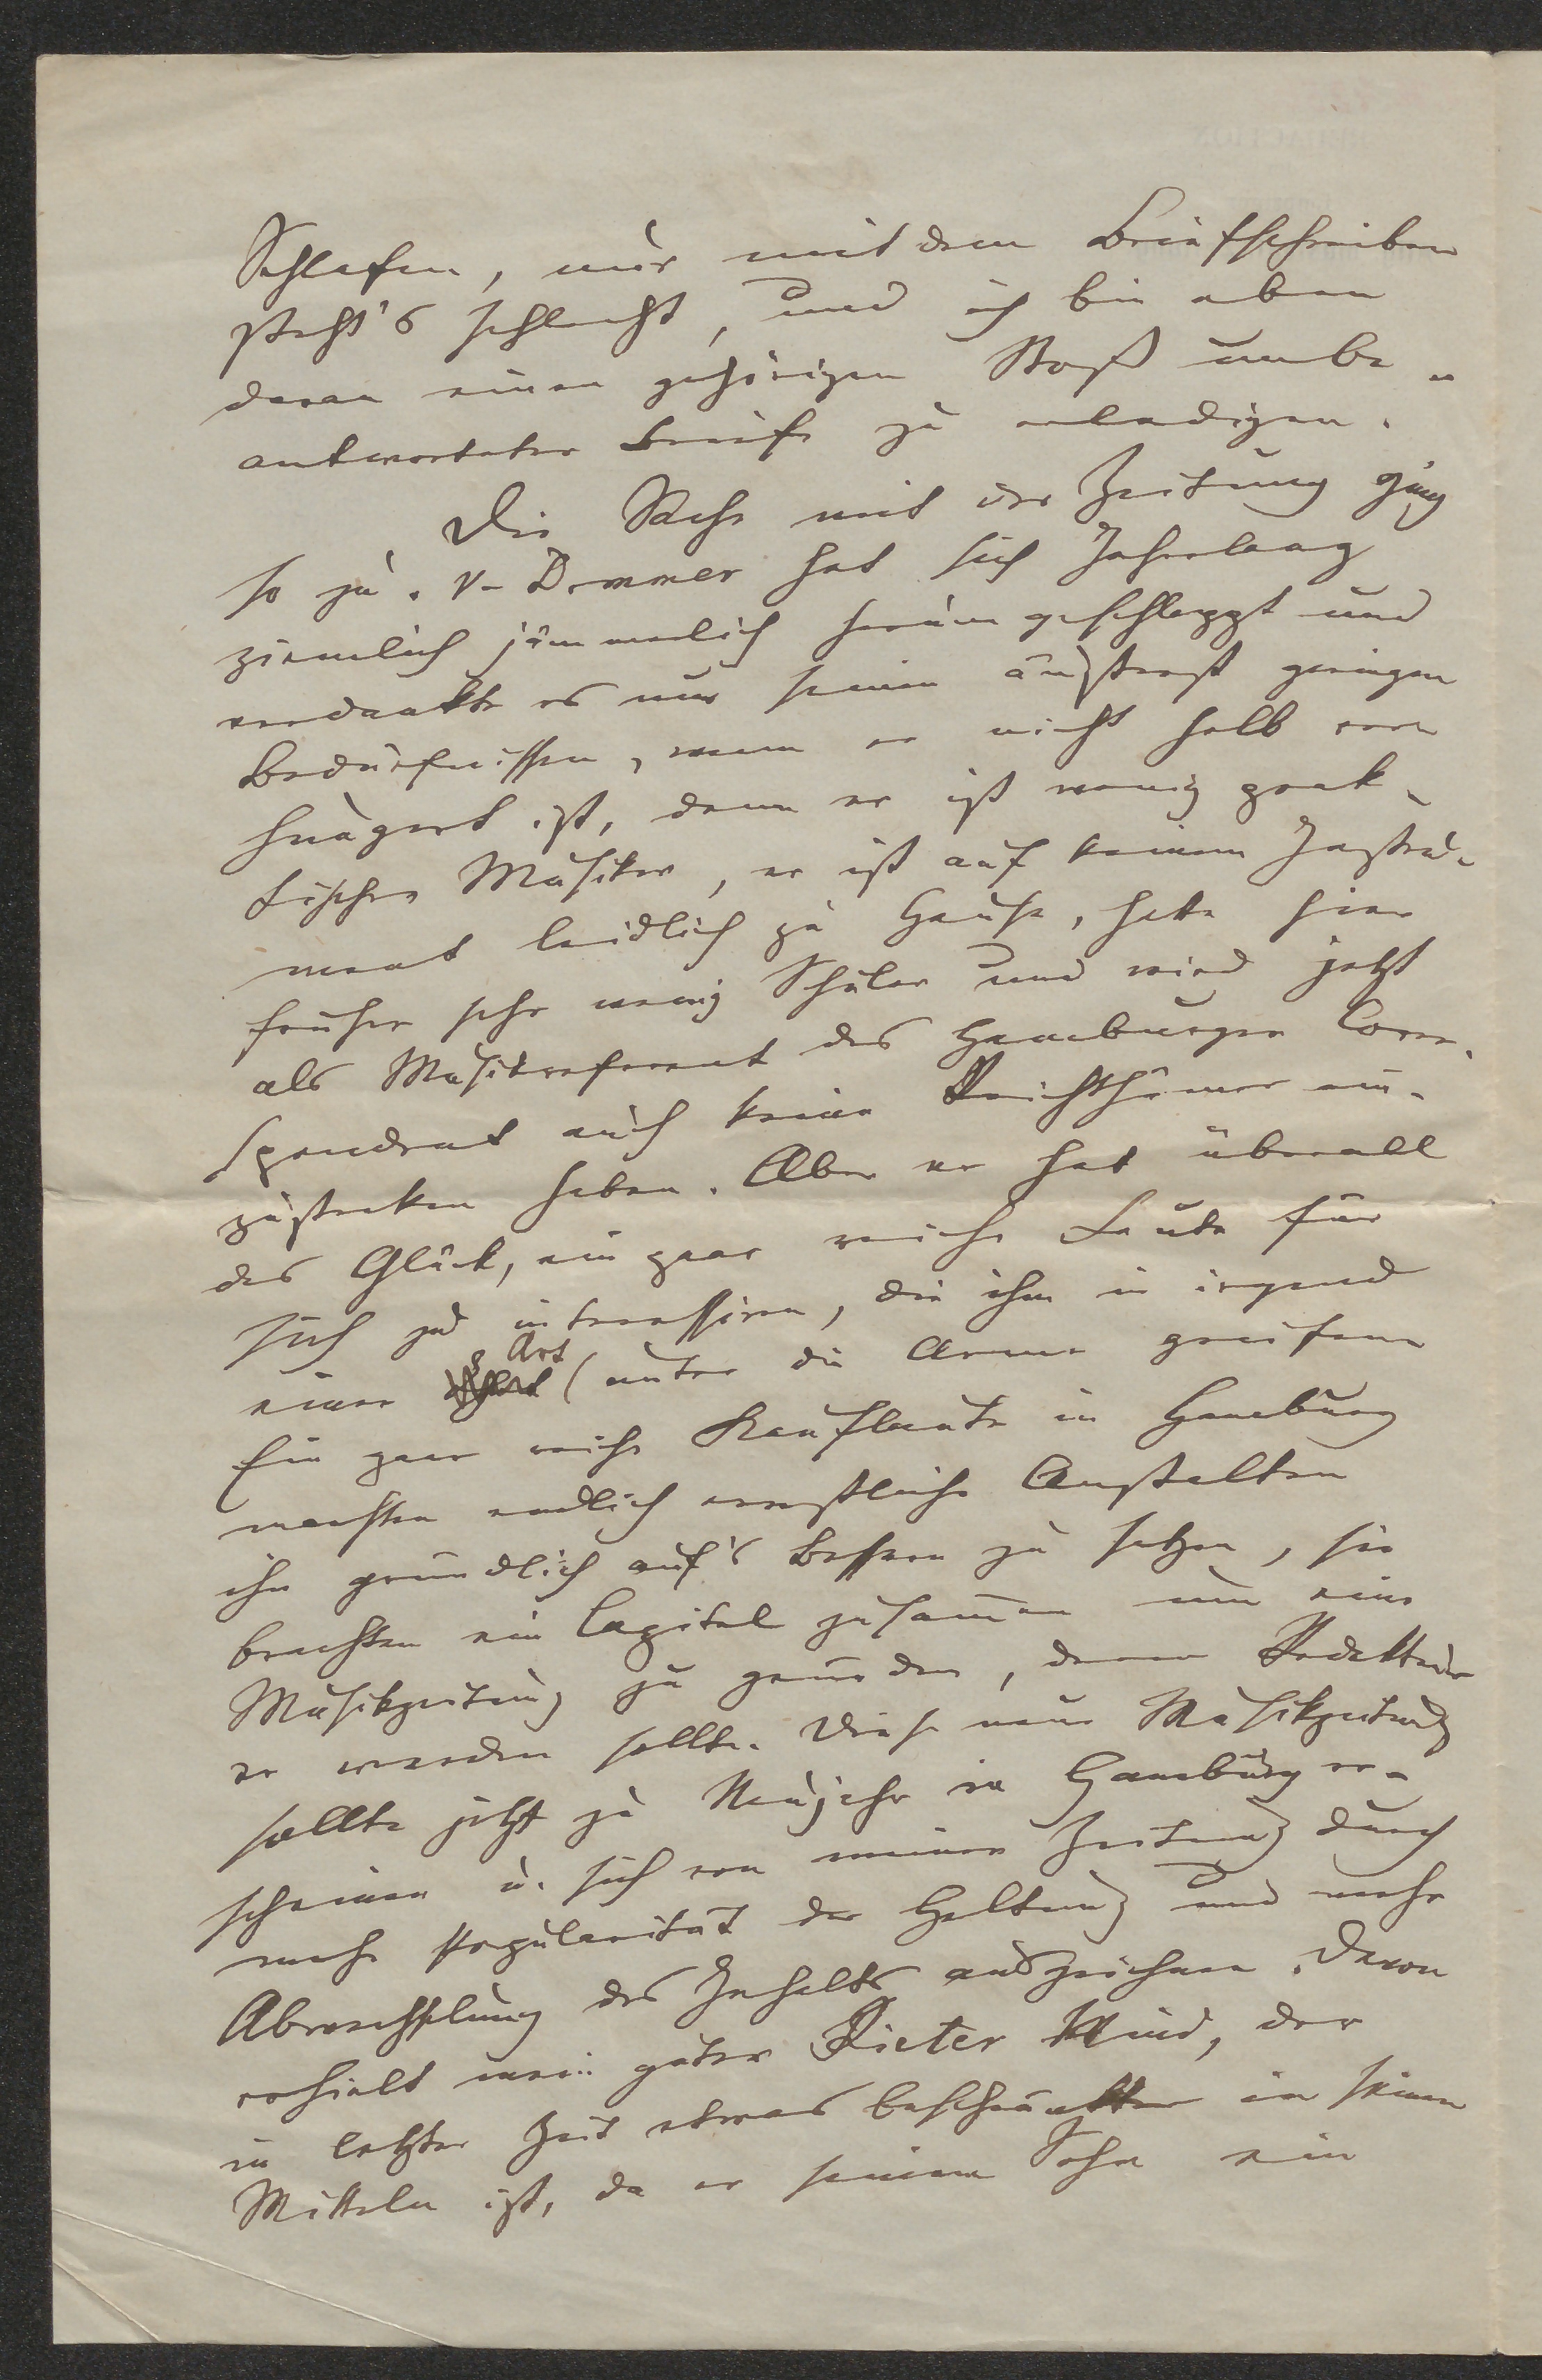 Schlafen, nur mit dem Briefschreiben
steht's schlecht, und ich bin eben
daran einen gehörigen Stoß unbe-
antworteter Briefe zu erledigen.
Die Sache mit der Zeitung ging
so zu. v. Dommer hat sich Jahrelang
ziemlich jämmerlich herumgeschleppt und
verdankte es nur seinen äußerst geringen
Bedürfnissen, wenn er nicht halb ver-
hungert ist, denn er ist wenig prak-
tischer Musiker, er ist auf keinem Instru-
ment leidlich zu Hause, hatte hier
früher sehr wenig Schüler und wird jetzt
als Musikreferent des Hamburger Corre-
spondent auch keine Reichthümer ein-
zustecken haben. Aber er hat überall
das Glück, ein paar reiche Leute für
sich zu interessiren, die ihm in irgend
einer Art unter die Arme greifen
Ein paar reiche Kaufleute in Hamburg
machten endlich ernstliche Anstalten
ihn gründlich auf's Bessere zu setzen, sie
brachten ein Capital zusammen um eine
Musikzeitung zu gründen, deren Redakteur
er werden sollte. Diese neue Musikzeitung
sollte jetzt zu Neujahr in Hamburg er-
scheinen u. sich von meiner Zeitung durch
mehr Popularität der Haltung und mehr
Abwechslung des Inhalts auszeichnen. Davon
erhielt mein guter Rieter Wind, der
in letzter Zeit etwas beschränkter in seinen
Mitteln ist, da er seinem Sohn ein